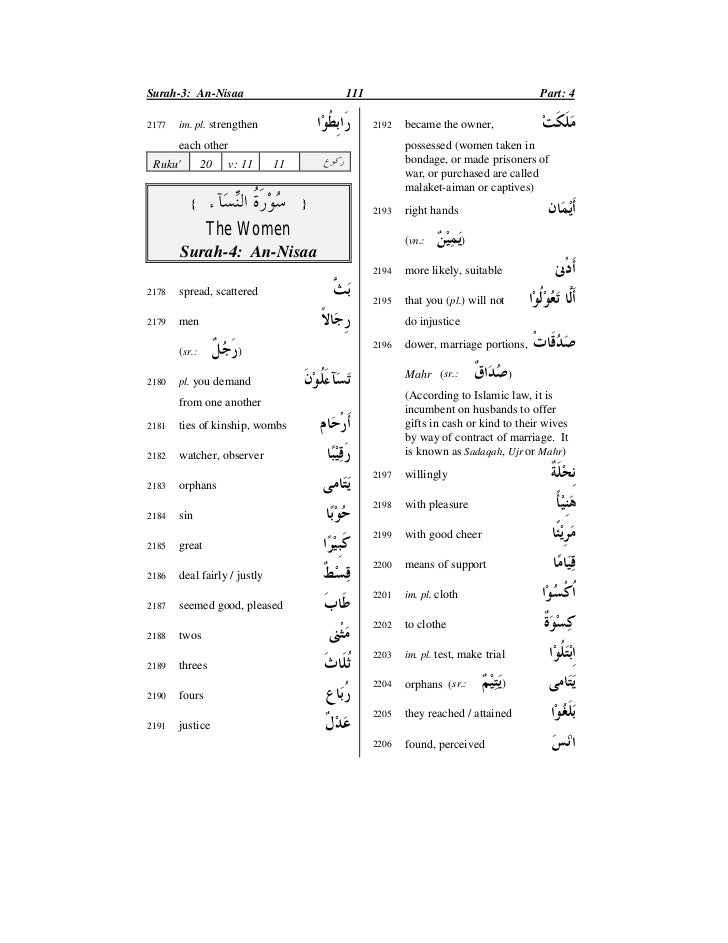 Surah-3: An-Nisaa 111 Part: 4
2177 im. pl. strengthen رَابِطُوْا
each other
Ruku' 20 v: 11 11 ركوع
{ سُوْرَةُ النِّسَآء }
The Women
Surah-4: An-Nisaa
2178 spread, scattered بَثَّ
2179 men رِجَالاً
(sr.: رَجُلٌ)
2180 pl. you demand تَسَآءَلُوْنَ
from one another
2181 ties of kinship, wombs أَرْحَام
2182 watcher, observer رَقِيْبًا
2183 orphans يَتَامٰى
2184 sin حُوْبًا
2185 great كَبِيْرًا
2186 deal fairly / justly قِسْطٌ
2187 seemed good, pleased طَابَ
2188 twos مَثْنٰى
2189 threes ثُلَاثَ
2190 fours رُبَاع
2191 justice عَدْلٌ
2192 became the owner, مَلَكَتْ
possessed (women taken in
bondage, or made prisoners of
war, or purchased are called
malaket-aiman or captives)
2193 right hands أَيْمَان
(vn.: يَمِيْنٌ)
2194 more likely, suitable أَدْنٰى
2195 that you (pl.) will not أَلَّا تَعُوْلُوْا
do injustice
2196 dower, marriage portions, صَدُقَاتْ
Mahr (sr.: صُدَاقٌ)
(According to Islamic law, it is
incumbent on husbands to offer
gifts in cash or kind to their wives
by way of contract of marriage. It
is known as Sadaqah, Ujr or Mahr)
2197 willingly نِحْلَةٌ
2198 with pleasure هَنِيْأً
2199 with good cheer مَرِيْئًا
2200 means of support قِيَامًا
2201 im. pl. cloth اُكْسُوْا
2202 to clothe كِسْوَةٌ
2203 im. pl. test, make trial ابْتَلُوْا
2204 orphans (sr.: يَتِيْمٌ) يَتَامٰى
2205 they reached / attained بَلَغُوْا
2206 found, perceived اٰنَسَ